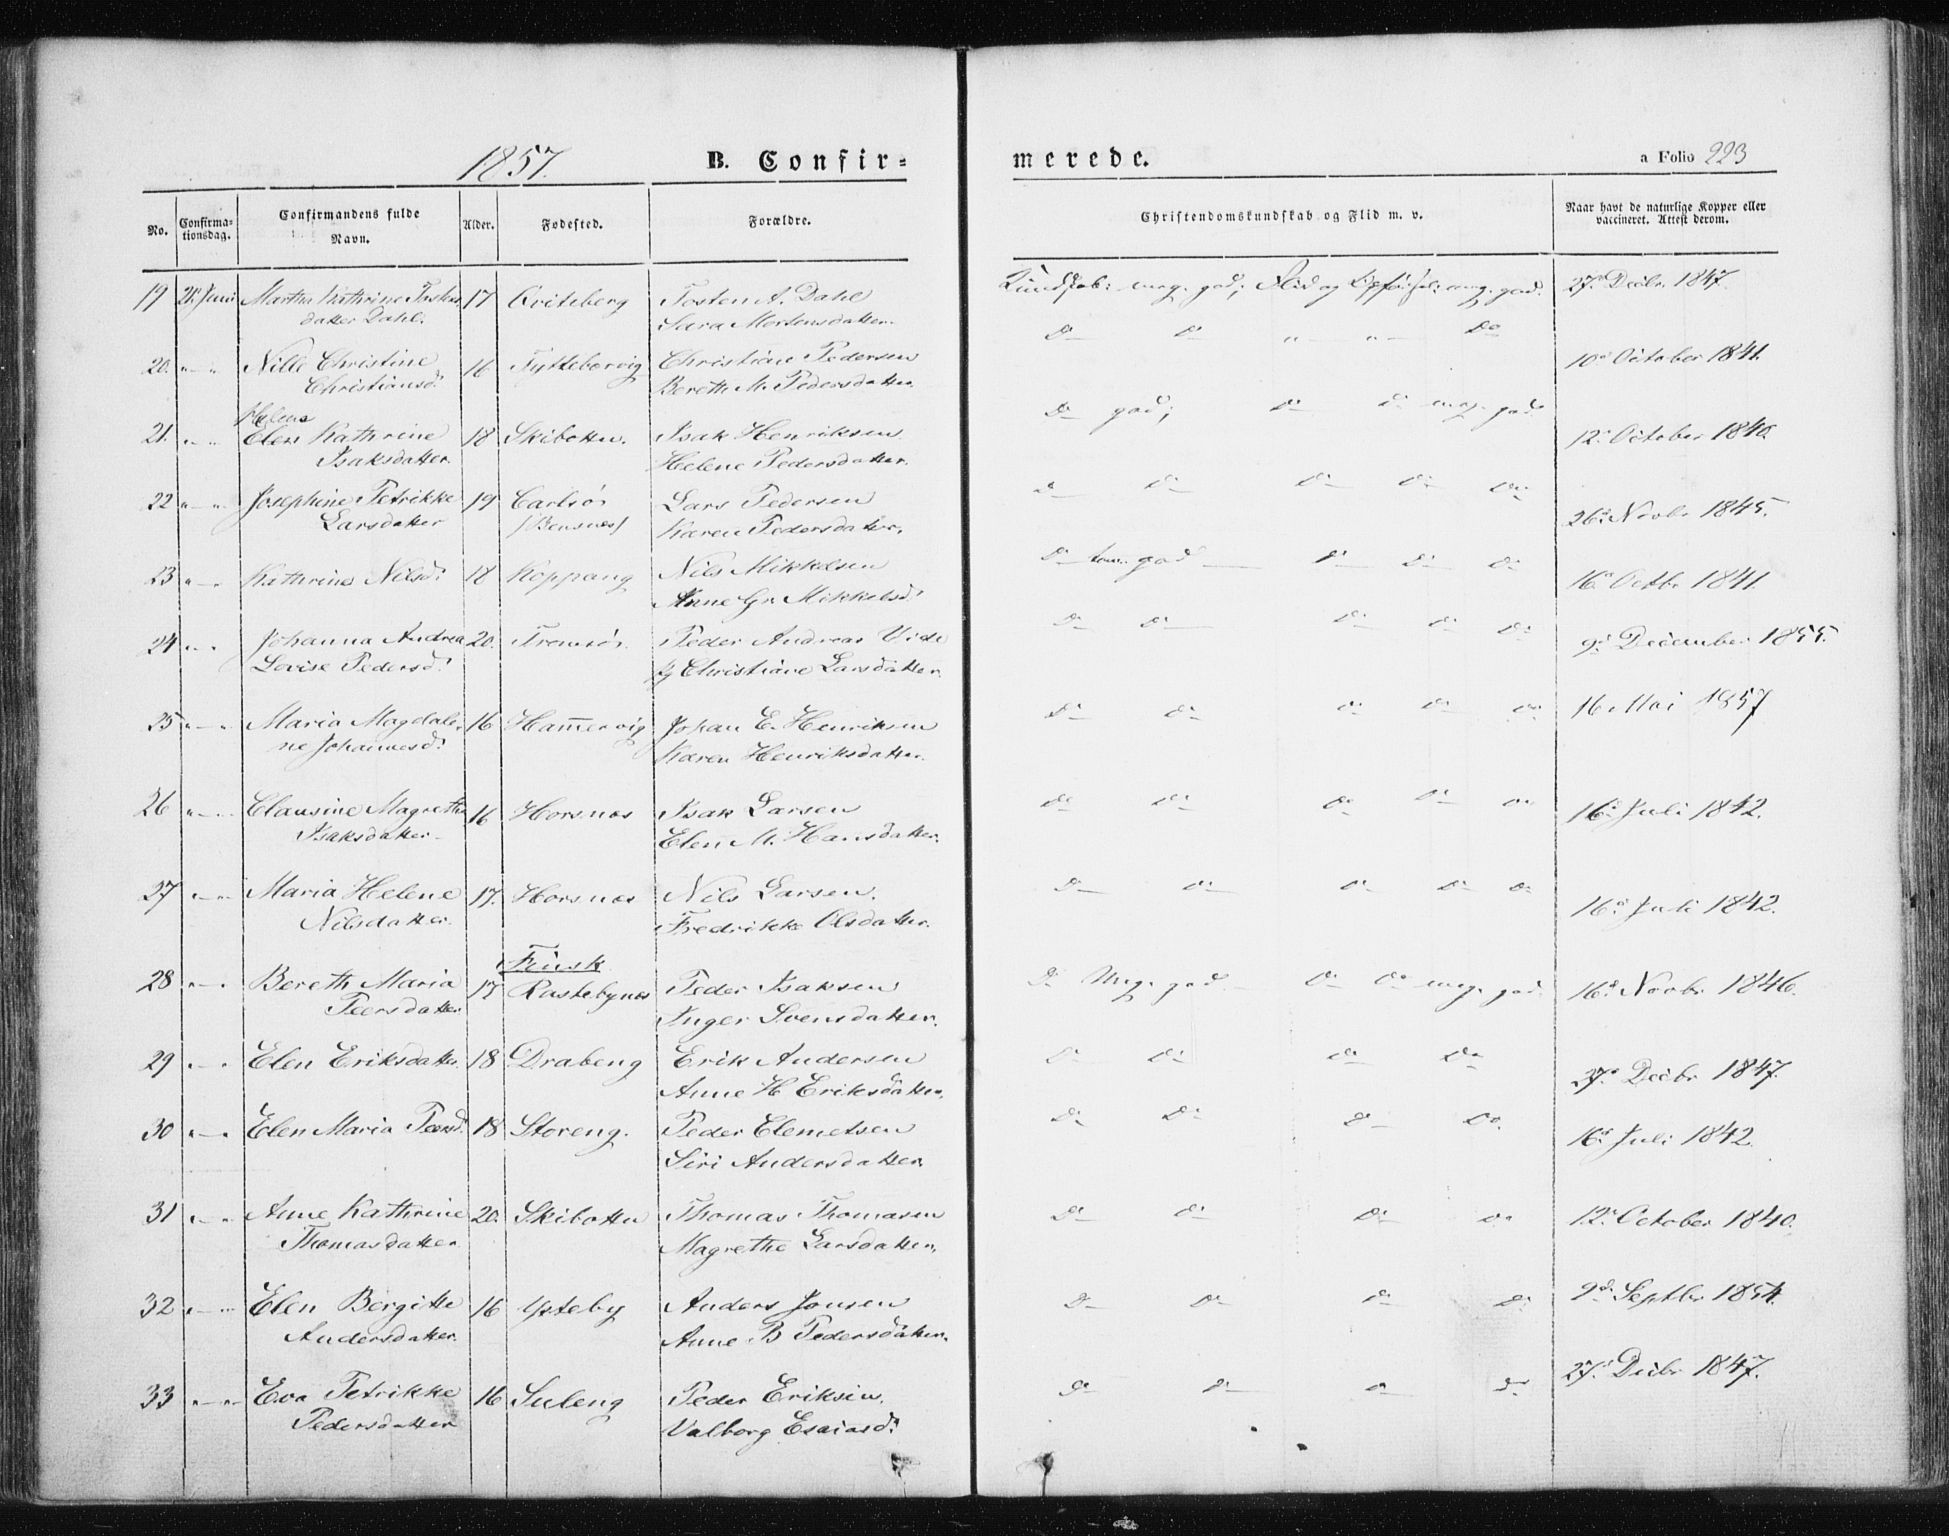 1857. B. Confir-
merede. a Folio 223
No. Confirma-tionsdag. Confirmandens fulde Navn. Alder. Fødested. Forældre. Christendomskundskab og Flid m. v. Naar havt de naturlige Kopper eller vaccineret. Attest derom.
19 21. Juni Martha Kathrine 17 Qviteberg Tosten A. Dahl Kundskab: meg. god; Flid og Opførsel: meg. god. 27d Decbr. 1847.
datter Dahl. Sara Mortensdatter.
20. " — " Nille Christine 16 Christian Pedersen Do Do " — " — Do 10d October 1841.
Christiansd. Bereth M. Pedersdatter.
Helene
21. " — " Elen Kathrine 18 Skibotten. Isak Henriksen Do god; Do Do meg. god. 12d October 1840.
Isaksdatter. Helene Pedersdatter.
22 " — " Josephine Petrikke 19 Carlsø Lars Pedersen Do Do Do Do Do 26d Novbr 1845.
Larsdatter Karen Pedersdatter.
23 " — " Kathrine Nilsd. 18 Koppang Nils Mikkelsen Do god Do Do Do 16d Octbr 1841.
Anne Gr. Mikkelsd.
24 " — " Johanna Andrea 20. Tromsø. Peder Andreas Do Do Do Do Do 9d December 1855.
Lovise Pedersd. Christiane Larsdatter.
25 " — " Maria Magdale- 16 Hamervig Johan E. Henriksen Do Do Do Do Do 16 Mai 1857
ne Johannesd. Karen Henriksdatter.
26 " — " Clausine Magrethe 16 Horsnæs Isak Larsen Do Do Do Do Do 16d Juli 1842.
Isaksdatter — Elen M. Hansdatter.
27 " — " Maria Helene 17. Horsnæs Nils Larsen. Do Do Do Do Do 16d Juli 1842.
Nilsdatter. Fredrikke Olsdatter.
Finsk
28 " — " Bereth Maria 17 Rastebynæs Peder Isaksen Do Meg. god. — Do Do meg. god. 16d Novbr 1846.
Peersdatter Inger Svensdatter.
29 " — " Elen Eriksdatter. 18 Drabeng Erik Andersen Do Do Do Do 27d Decbr 1847.
Anne H Eriksdatter.
30 " — " Elen Maria Peersd. 18 Storeng. Peder Clemetsen Do Do Do Do. 16d Juli 1842.
Siri Andersdatter.
31 " — " Anne Kathrine 20. Skibotten Thomas Thomasen Do Do Do Do 12d October 1840.
Thomasdatter Magrethe Larsdatter.
32 " — " Elen Bergitte 16 Ysteby Anders Jonsen Do Do Do Do 9d Septbr 1854.
Andersdatter. Anne B Pedersdatter.
33 " — " Eva Petrikke 16 Suleng Peder Eriksen. Do Do Do Do 27d Decbr 1847.
Pedersdatter Valborg Esaiasd.